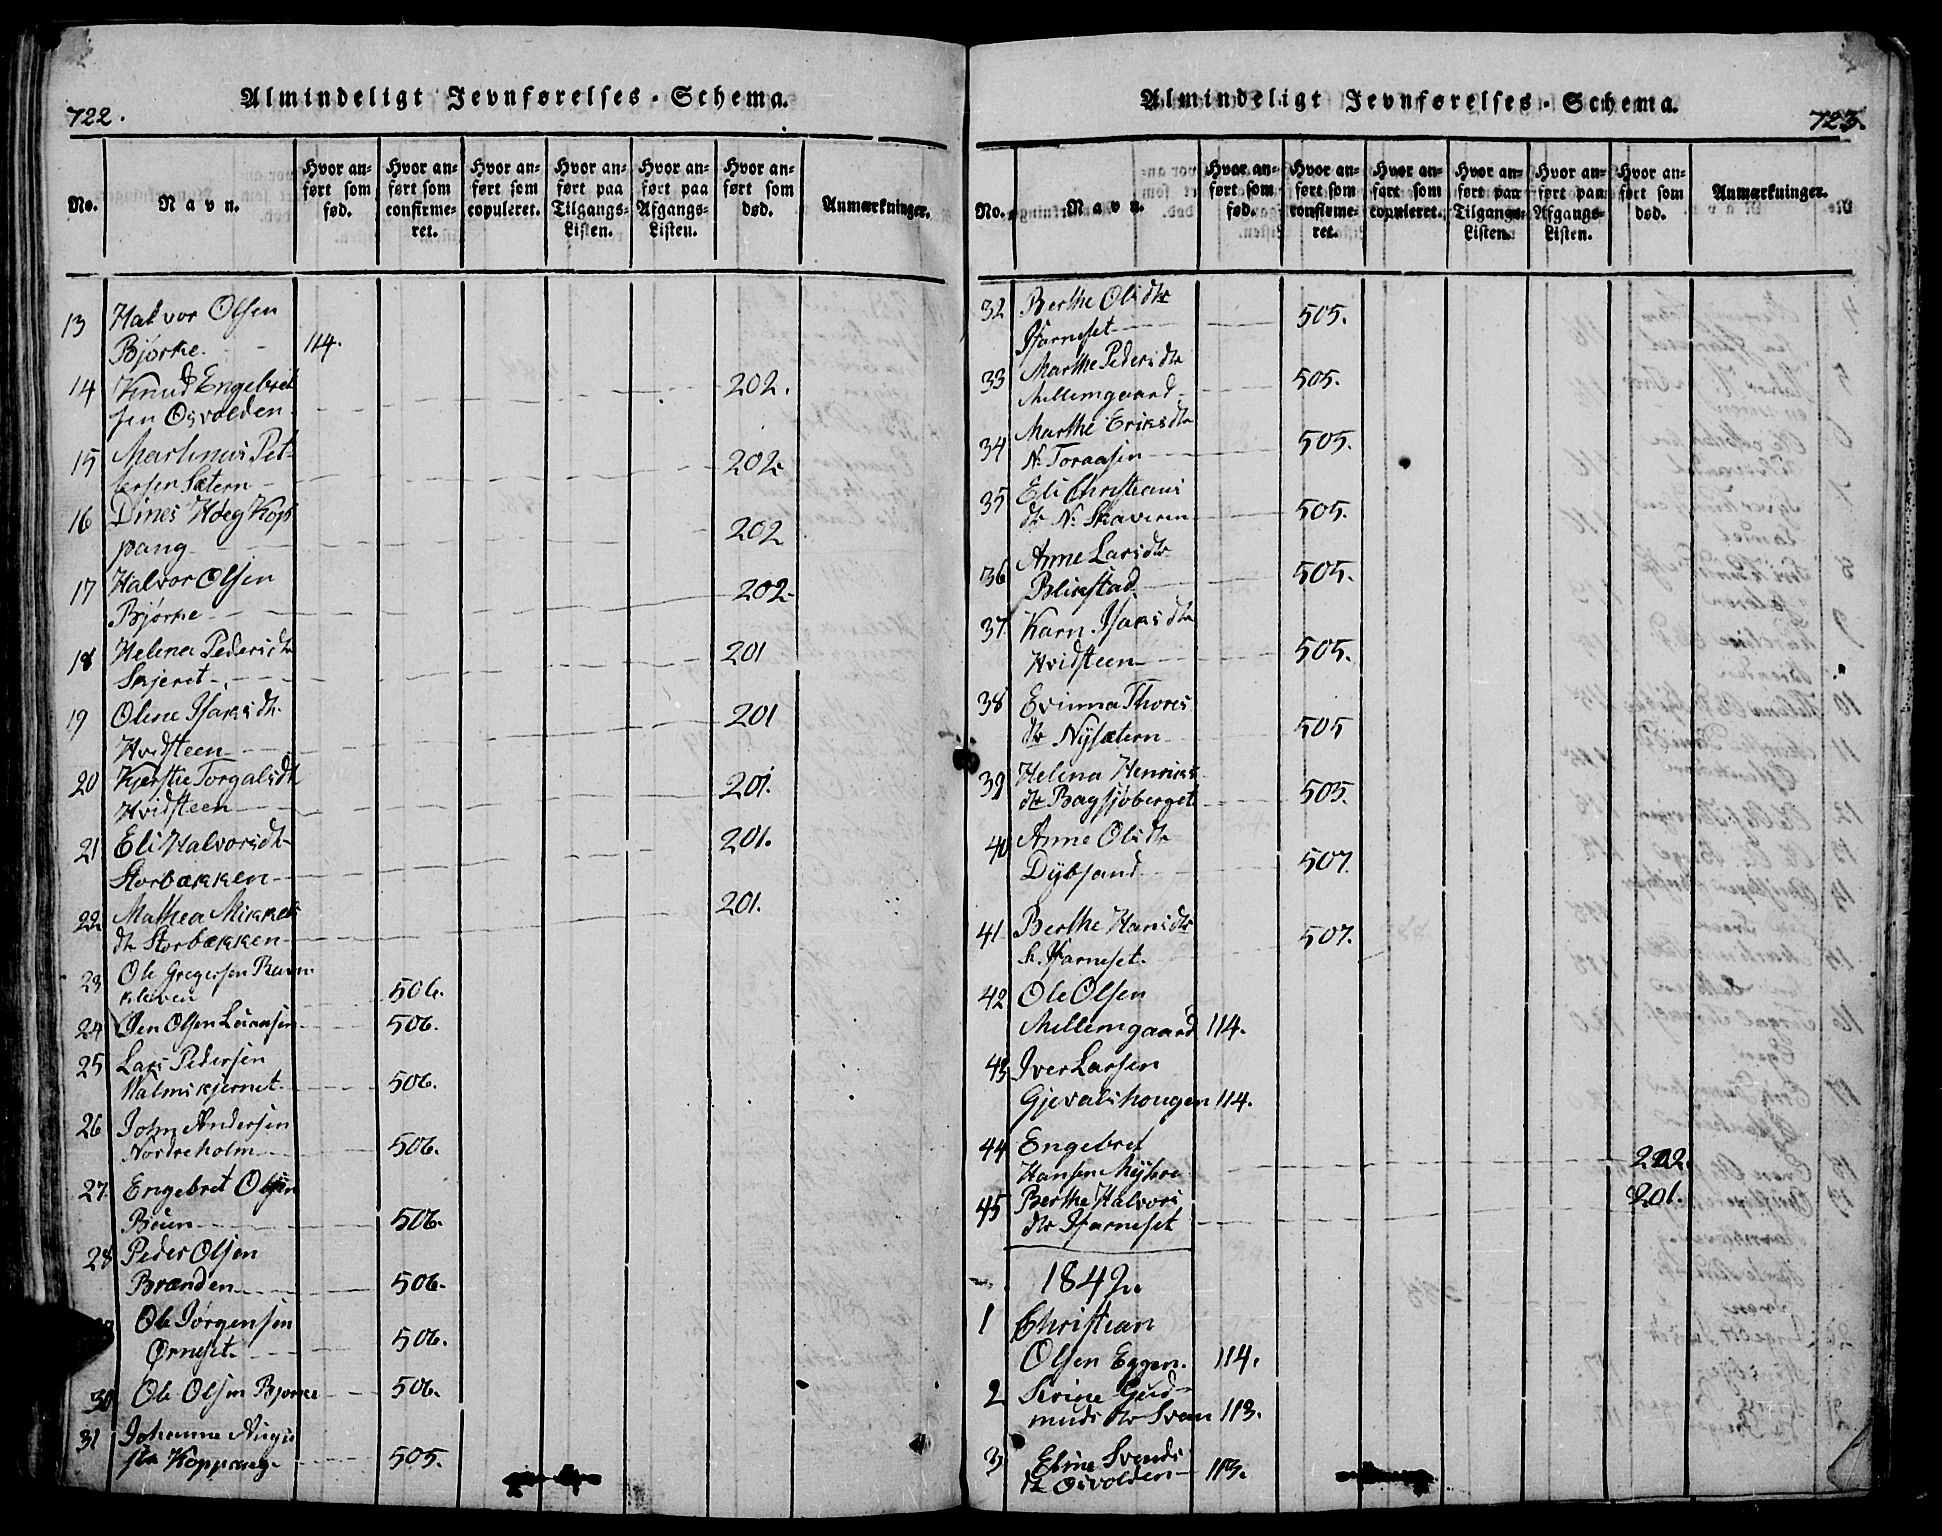 722.
Almindeligt Jevnførelses-Schema.
No.
Navn.
Hvor an-
ført som
fød.
Hvor an-
ført som
confirme-
ret.
Hvor an-
ført som
copuleret.
Hvor an-
ført paa
Tilgangs-
Listen.
Hvor an-
ført paa
Afgangs-
Listen.
Hvor an-
ført som
død.
Anmærkninger.
13 Halvor Olsen
Bjørke. 114.
14 Knud Engebret
sen Osvolden 202.
15 Martinus Pet-
tersen Sætern 202.
16 Dines Høeg Kop
pang 202
17 Halvor Olsen
Bjørke 202.
18 Helena Pedersdtr
Skjeret 201
19 Oline Isaksdtr
Hvidsteen 201
20 Kjerstie Torgalsdtr
Hvidsteen 201.
21 Eli Halvorsdtr
Storbækken 201.
22 Mathea Mikkels
dtr Storbækken 201.
23 Ole Gregersen Ravn
kleven 506.
24 Iven Olsen 506.
25 Lars Pedersen
Malmkjernet 506.
26 John Andersen
Nordreholm 506.
27. Engebret Olsen
506.
28 Peder Olsen
Brænden 506.
Ole Jørgensen
Ørneset. 506.
30 Ole Olsen Bjørke 506.
31 Johanne Augu
sta Koppang 505.
Almindeligt Jevnførelses-Schema.
723.
No.
Navn.
Hvor an-
ført som
fød.
Hvor an-
ført som
confirme-
ret.
Hvor an-
ført som
copuleret.
Hvor an-
ført paa
Tilgangs-
Listen.
Hvor an-
ført paa
Afgangs-
Listen.
Hvor an-
ført som
død.
Anmærkninger.
32 Berthe Olsdtr
505.
33 Marthe Pedersdtr
Mellemgaard 505.
34 Marthe Eriksdtr
N. Toraasen 505.
35 Eli Christians
dtr N. Skaveren 505.
36 Anne Larsdtr
Blikstad 505.
37 Karn Isaksdtr
Hvidsteen 505.
38 Evinna Thores
dtr Nysætern 505
39 Helena Henriks
dtr Bagsjøberget 505.
40 Anne Olsdtr
Dybsand 507.
41 Berthe Hansdtr
507.
42 Ole Olsen
Mellemgaard 114.
43 Iver Larsen
Gjevalshougen 114.
44 Engebret
Hansen 202.
45 Berthe Halvors
dtr 201.
1842.
1 Christian
Olsen Eggen. 114.
2 Serine Gud-
mundsdtr 113.
3 Eline Svends
dtr Osvolden 113.